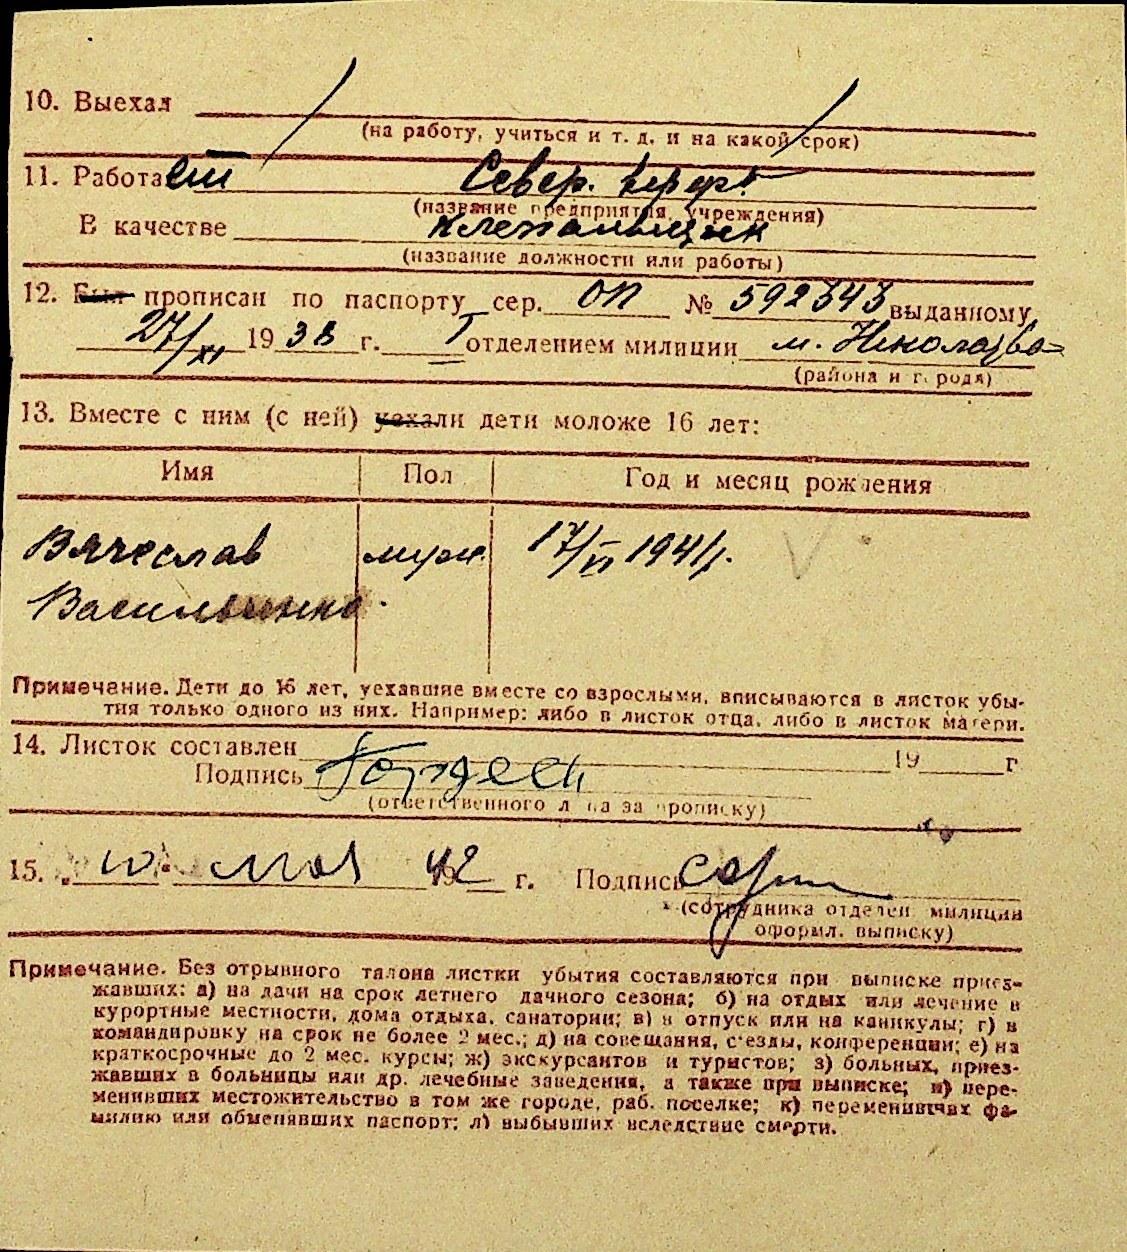 10. Выехал
(на работу, учиться и т. д. и на какой срок)
11. Работает Север. верфь
(название предприятия, учреждения)
В качестве клепальщик
(название должности или работы)
12. Был прописан по паспорту сер. ОП № 592343 выданному
27/XI 1938 г. I отделением милиции м. Николаева
(района и города)
13. Вместе с ним (с ней) уехали дети моложе 16 лет:
Имя Пол Год и месяц рождения
Вячеслав муж. 17/VI 1941 г.
Васильевич.
Примечание. Дети до 16 лет, уехавшие вместе со взрослыми, вписываются в листок убы-
тия только одного из них. Например: либо в листок отца, либо в листок матери.
14. Листок составлен 19 г
Подпись
(ответственного лица за прописку)
15. „10" мая 1942 г. Подпись
(сотрудника отделен. милиции
оформл. выписку)
Примечание. Без отрывного талона листки убытия составляются при выписке приез-
жавших: а) на дачи на срок летнего дачного сезона; б) на отдых или лечение в
курортные местности, дома отдыха, санатории; в) в отпуск или на каникулы; г) в
командировку на срок не более 2 мес.; д) на совещания, съезды, конференции; е) на
краткосрочные до 2 мес. курсы; ж) экскурсантов и туристов; з) больных, приез-
жавших в больницы или др. лечебные заведения, а также при выписке; и) пере-
менивших местожительство в том же городе, раб. поселке; к) переменивших фа-
милию или обменявших паспорт; л) выбывших вследствие смерти.